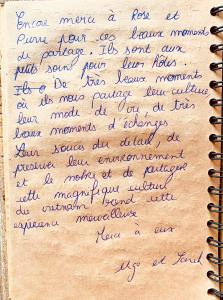 Encore merci à Rose et
Pierre pour ces beaux moments
de partage. Ils sont aux
petits soins pour leurs hôtes.
De très beaux moments
où ils nous partage leur culture
leur mode de vie de très
beaux moments d'échanges
Leur soucis du detail, de
preserver leur environnement
et le notre et de partager
cette magnifique culture
du vietnam rend cette
expérience merveilleuse
Merci à eux
Ugo et Sarah